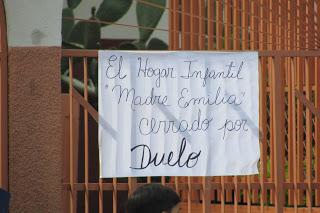 El Hogar Infantil
"Madre Emilia"
cerrado por
Duelo